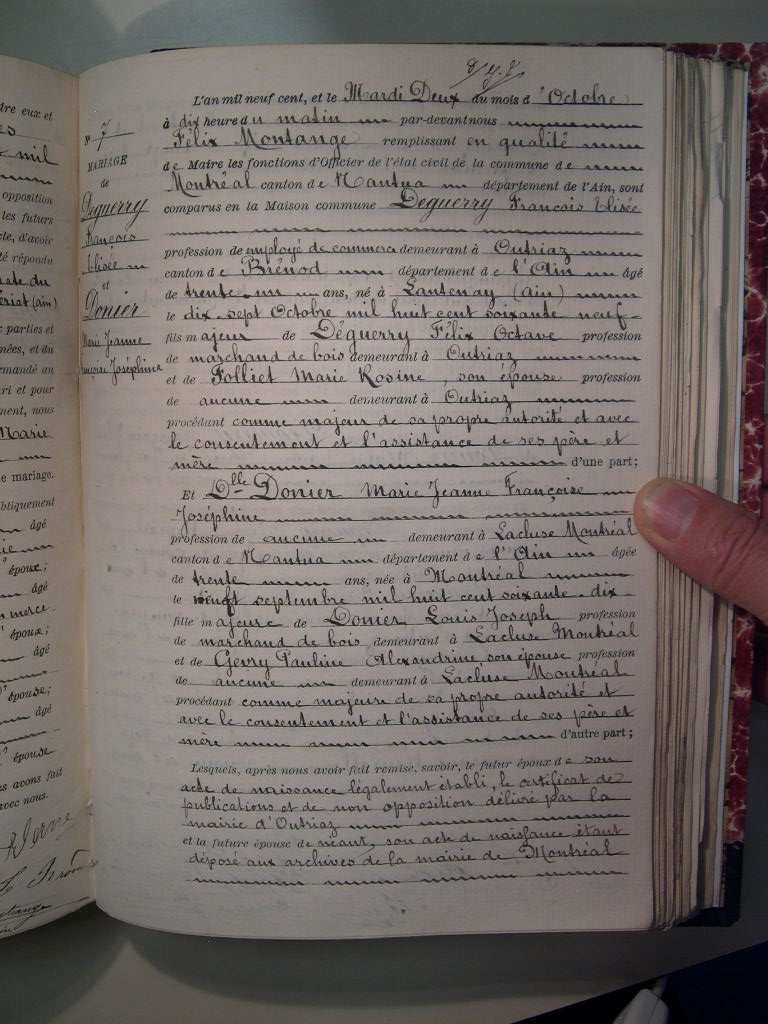 dre eux et
mil
opposition
les futurs
cte, d'avoir
té répondu
parties et
nées, et du
ari et pour
ment, nous
Marie
e mariage.
bliquement
âgé
épouse;
âgé
merce
épouse;
âgé
épouse;
âgé
épouse
s avons fait
avec nous.
N° 7
MARIAGE
de
Deguerry
François
Elisée
et
Donier
Marie Jeanne
Françoise Joséphine
L'an mil neuf cent, et le Mardi Deux du mois d'Octobre
à dix heure du matin par-devant nous
Félix Montange remplissant en qualité
de Maire les fonctions d'Officier de l'état civil de la commune de
Montréal canton de Nantua département de l'Ain, sont
comparus en la Maison commune Deguerry François Elisée
profession de employé de commerce demeurant à Outriaz
canton de Brénod département de l'Ain âgé
de trente un ans, né à Lantenay (ain)
le dix-sept Octobre mil huit cent soixante neuf-
fils majeur de Déguerry Félix Octave profession
de marchand de bois demeurant à Outriaz
et de Folliet Marie Rosine, son épouse profession
de aucune demeurant à Outriaz
procédant comme majeur de sa propre autorité et avec
le consentement et l'assistance de ses père et
mère d'une part;
Et Dlle Donier Marie Jeanne Françoise
Joséphine
profession de aucune demeurant à Lacluse Montréal
canton de Nantua département de l'Ain âgée
de trente ans, née à Montréal
le septembre mil huit cent soixante-dix-
fille majeure de Donier Louis Joseph profession
de marchand de bois demeurant à Lacluse Montréal
et de Gevry Pauline Alexandrine son épouse profession
de aucune demeurant à Lacluse Montréal
procédant comme majeure de sa propre autorité et
avec le consentement et l'assistance de ses père et
mère d'autre part;
Lesquels, après nous avoir fait remise, savoir, le futur époux de son
acte de naissance légalement établi, le certificat de
publications et de non opposition délivré par la
mairie d'Outriaz
et la future épouse de néant, son acte de naissance étant
déposé aux archives de la mairie de Montréal